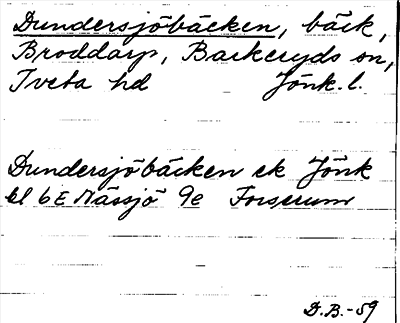 Dundersjöbäcken, bäck,
Broddarp, Barkeryds sn,
Tveta hd Jönk. l.
Dundersjöbäcken ek Jönk
bl 6E Nässjö 9e Forserum
D.B.-59